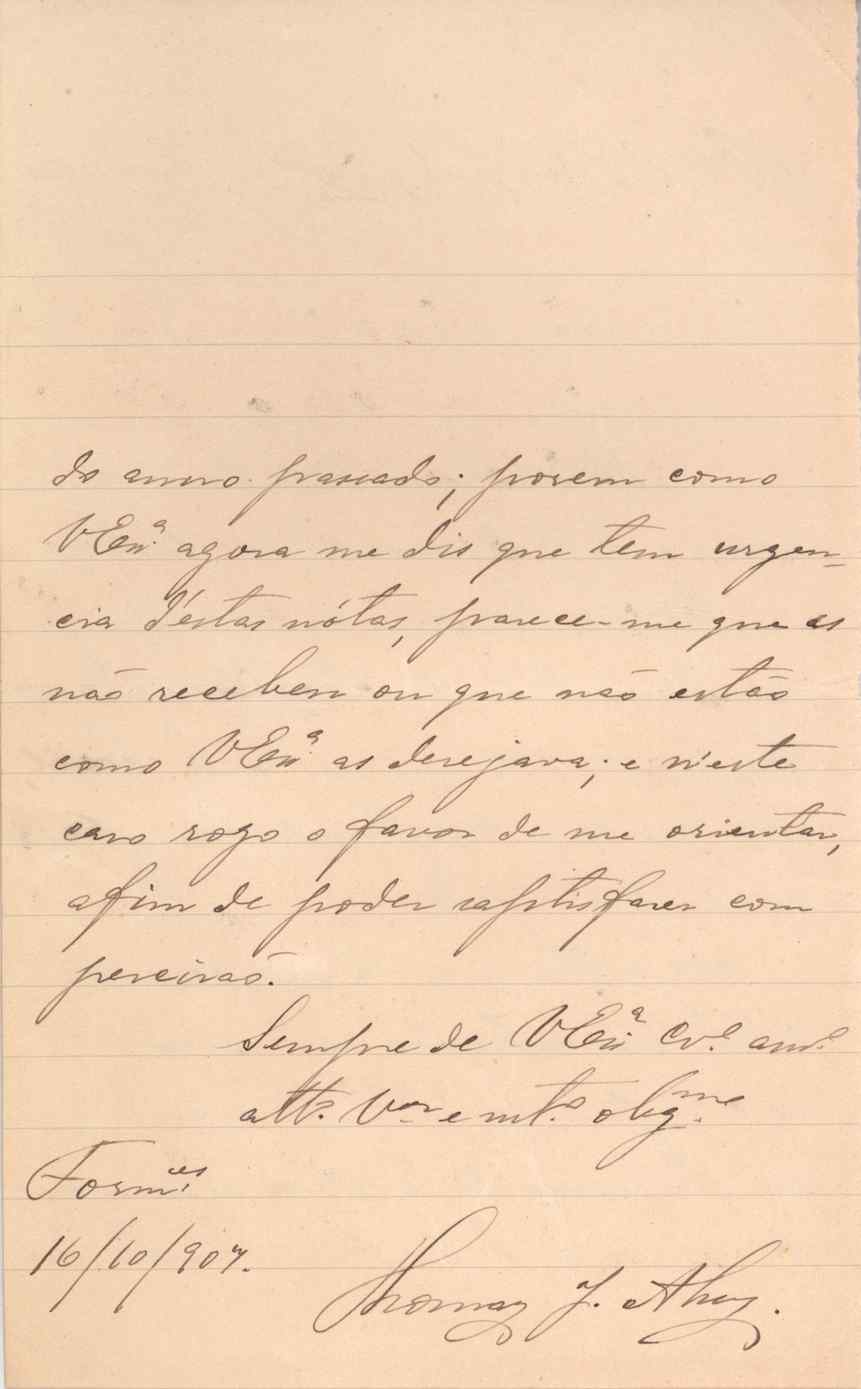 do anno passado; porem como
VExª agora me dis que tem urgen-
cia d'estas nótas, parece-me que as
não receben ou que não estão
como VExª as desejava; e n'este
caso rogo o favor de me orientar,
afim de poder sapttisfazer com
percizaõ.
Sempre de VExª Cr.º am.º
att.º V.or e mt.º obrg.mo
Form.es
16/10/907.
Thomaz J.